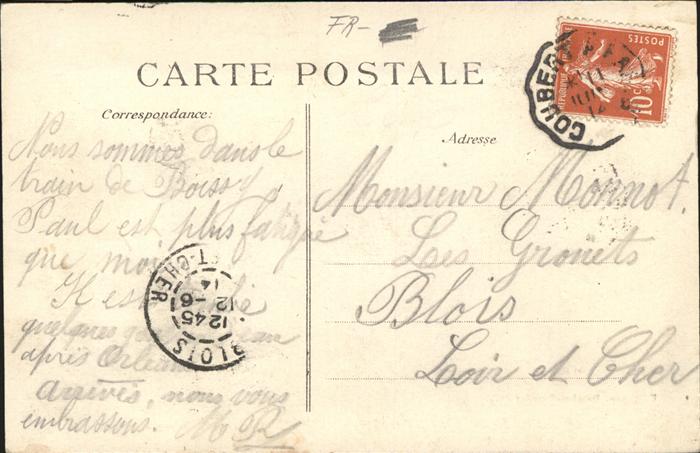 FR-
CARTE POSTALE
Correspondance:
Nous sommes dans le
train de Boissy
Paul est plus fatigué
que moi
Il est
quelques
après Orléans
arrivés, nous vous
embrassons. M R
Adresse
Monsieur Monnot.
Les Grouets
Blois
Loir et Cher
POSTES
10 c
COUBER
BLOIS
ET-CHER
12 45
12 - 6
14